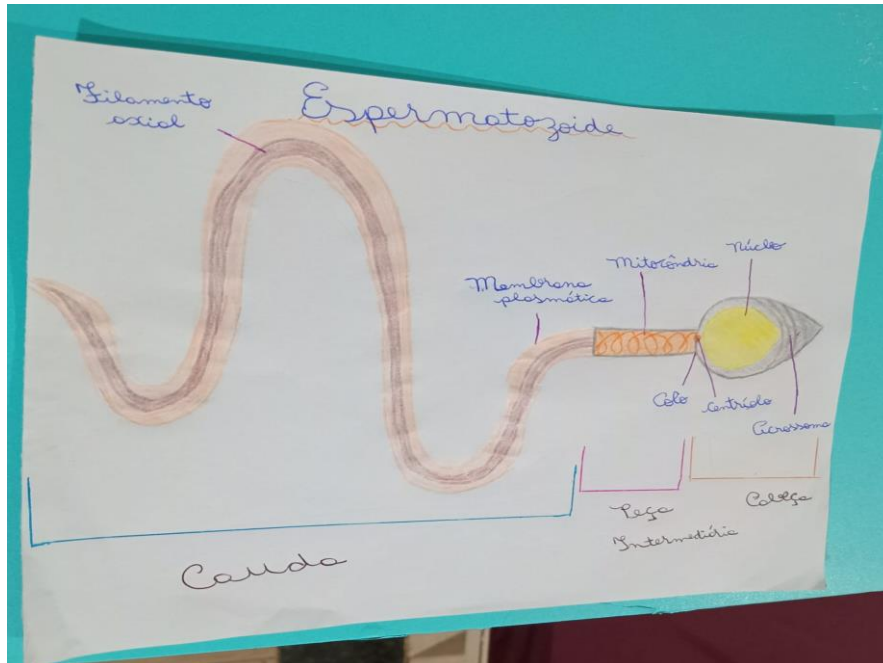 Espermatozoide
Filamento
axial
Membrana
plasmática
Mitocôndria
Núcleo
Colo
Centríolo
Acrossoma
Cauda
Peça
Intermediária
Cabeça